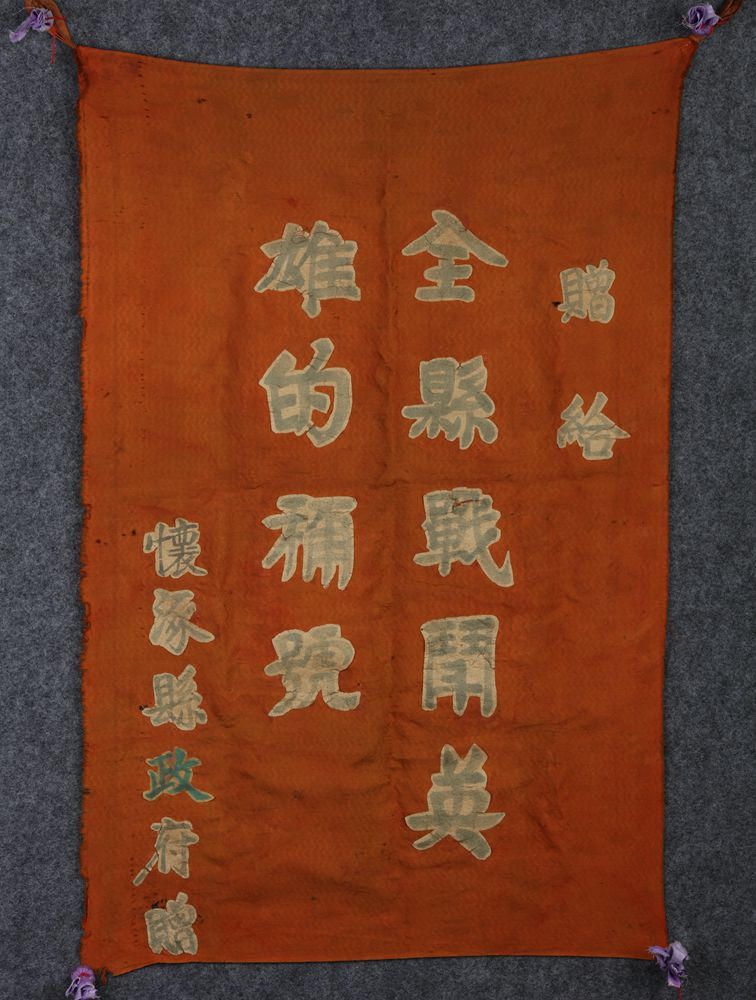 贈給
全縣戰鬪英
雄的稱號
懷涿縣政府贈